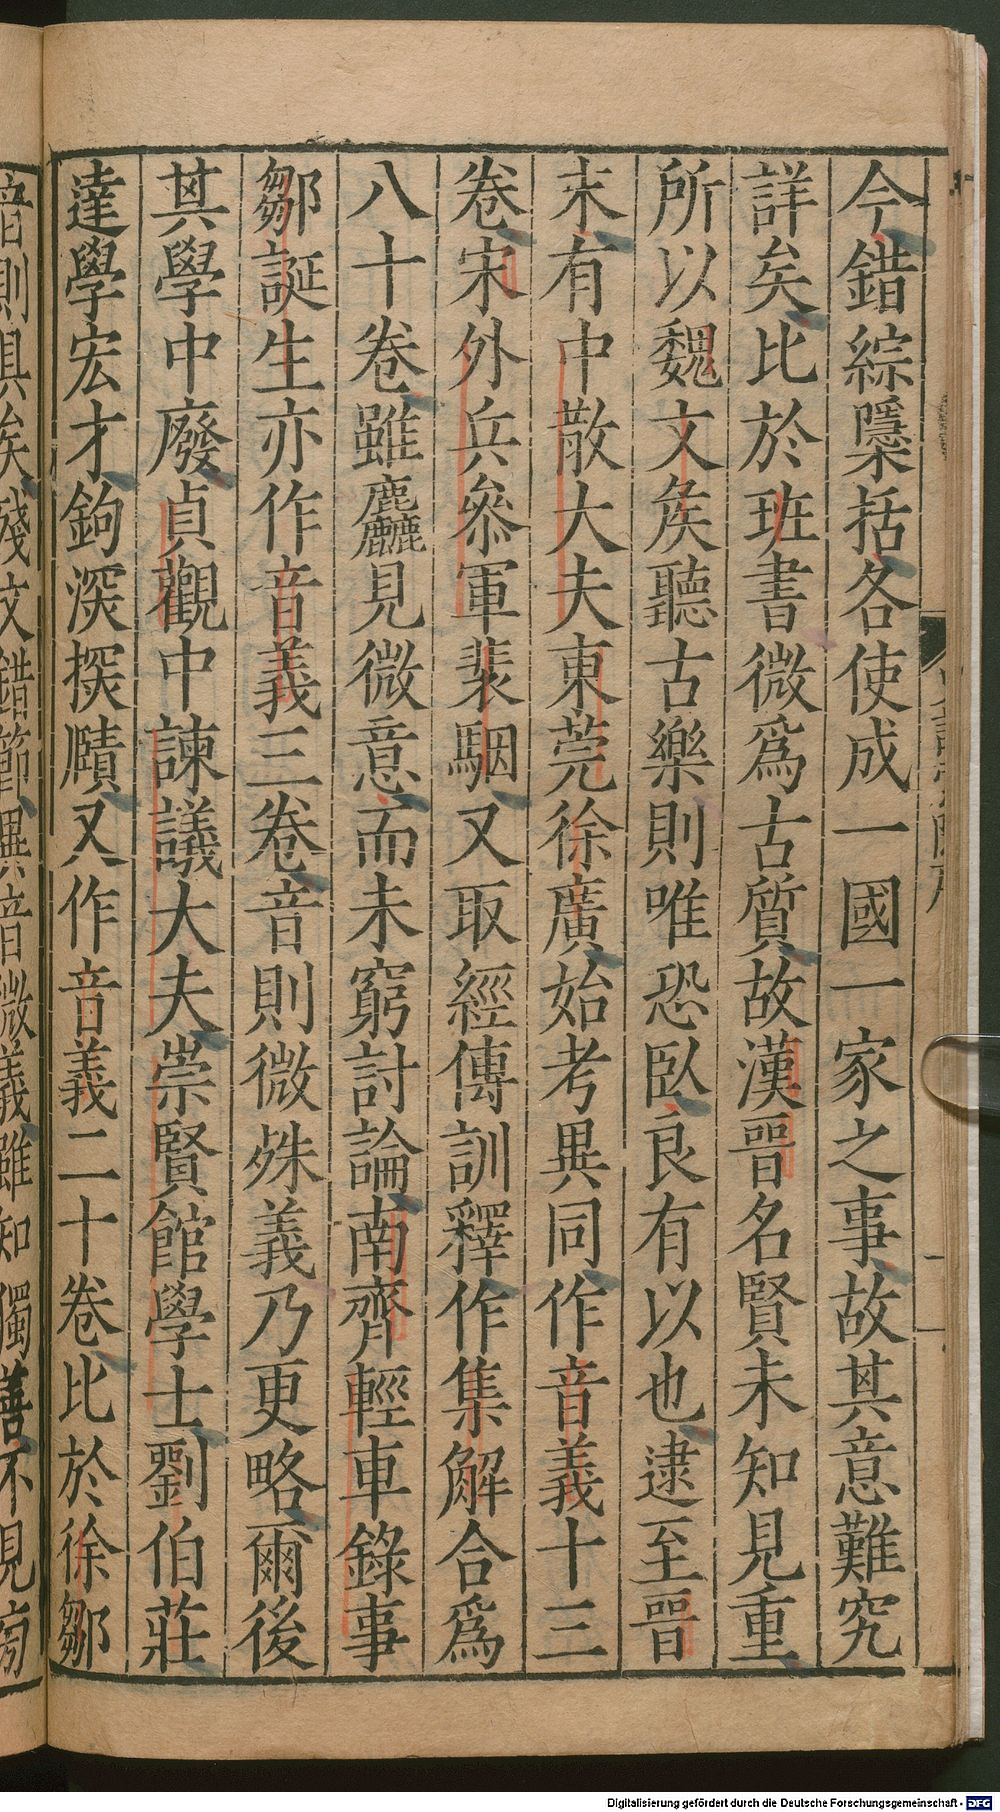 今錯綜隱括各使成一國一家之事故其意難究
詳矣比於班書微爲古質故漢晉名賢未知見重
所以魏文侯聽古樂則唯恐臥良有以也逮至晉
末有中散大夫東莞徐廣始考異同作音義十三
卷宋外兵參軍裴駰又取經傳訓釋作集解合爲
八十卷雖麤見微意而未窮討論南齊輕車錄事
鄒誕生亦作音義三卷音則微殊義乃更略爾後
其學中廢貞觀中諫議大夫崇賢館學士劉伯莊
達學宏才鉤深探賾又作音義二十卷比於徐鄒
音則具矣殘文錯節異音微義雖知獨善不見旁
Digitalisierung gefördert durch die Deutsche Forschungsgemeinschaft - DFG